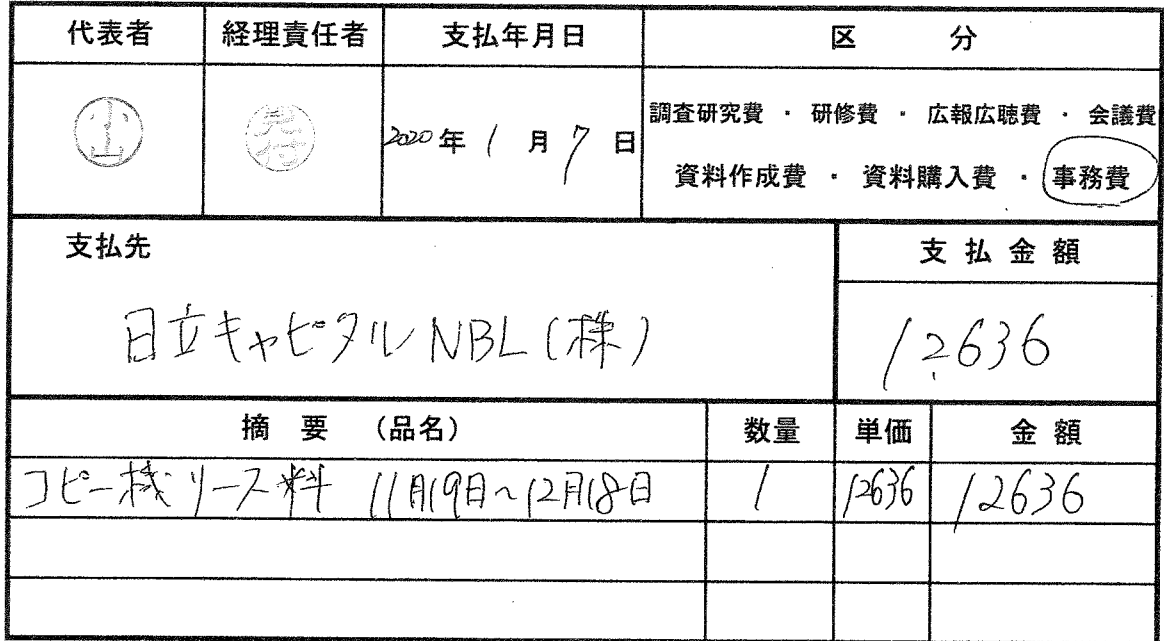 代表者 経理責任者 支払年月日 区分
小山
2020年1月7日
調査研究費 ・ 研修費 ・ 広報広聴費 ・ 会議費
資料作成費 ・ 資料購入費 ・ 事務費
支払先 支払金額
日立キャピタルNBL(株) 12636
摘要 (品名) 数量 単価 金額
コピー機リース料 11月19日~12月18日 1 12636 12636